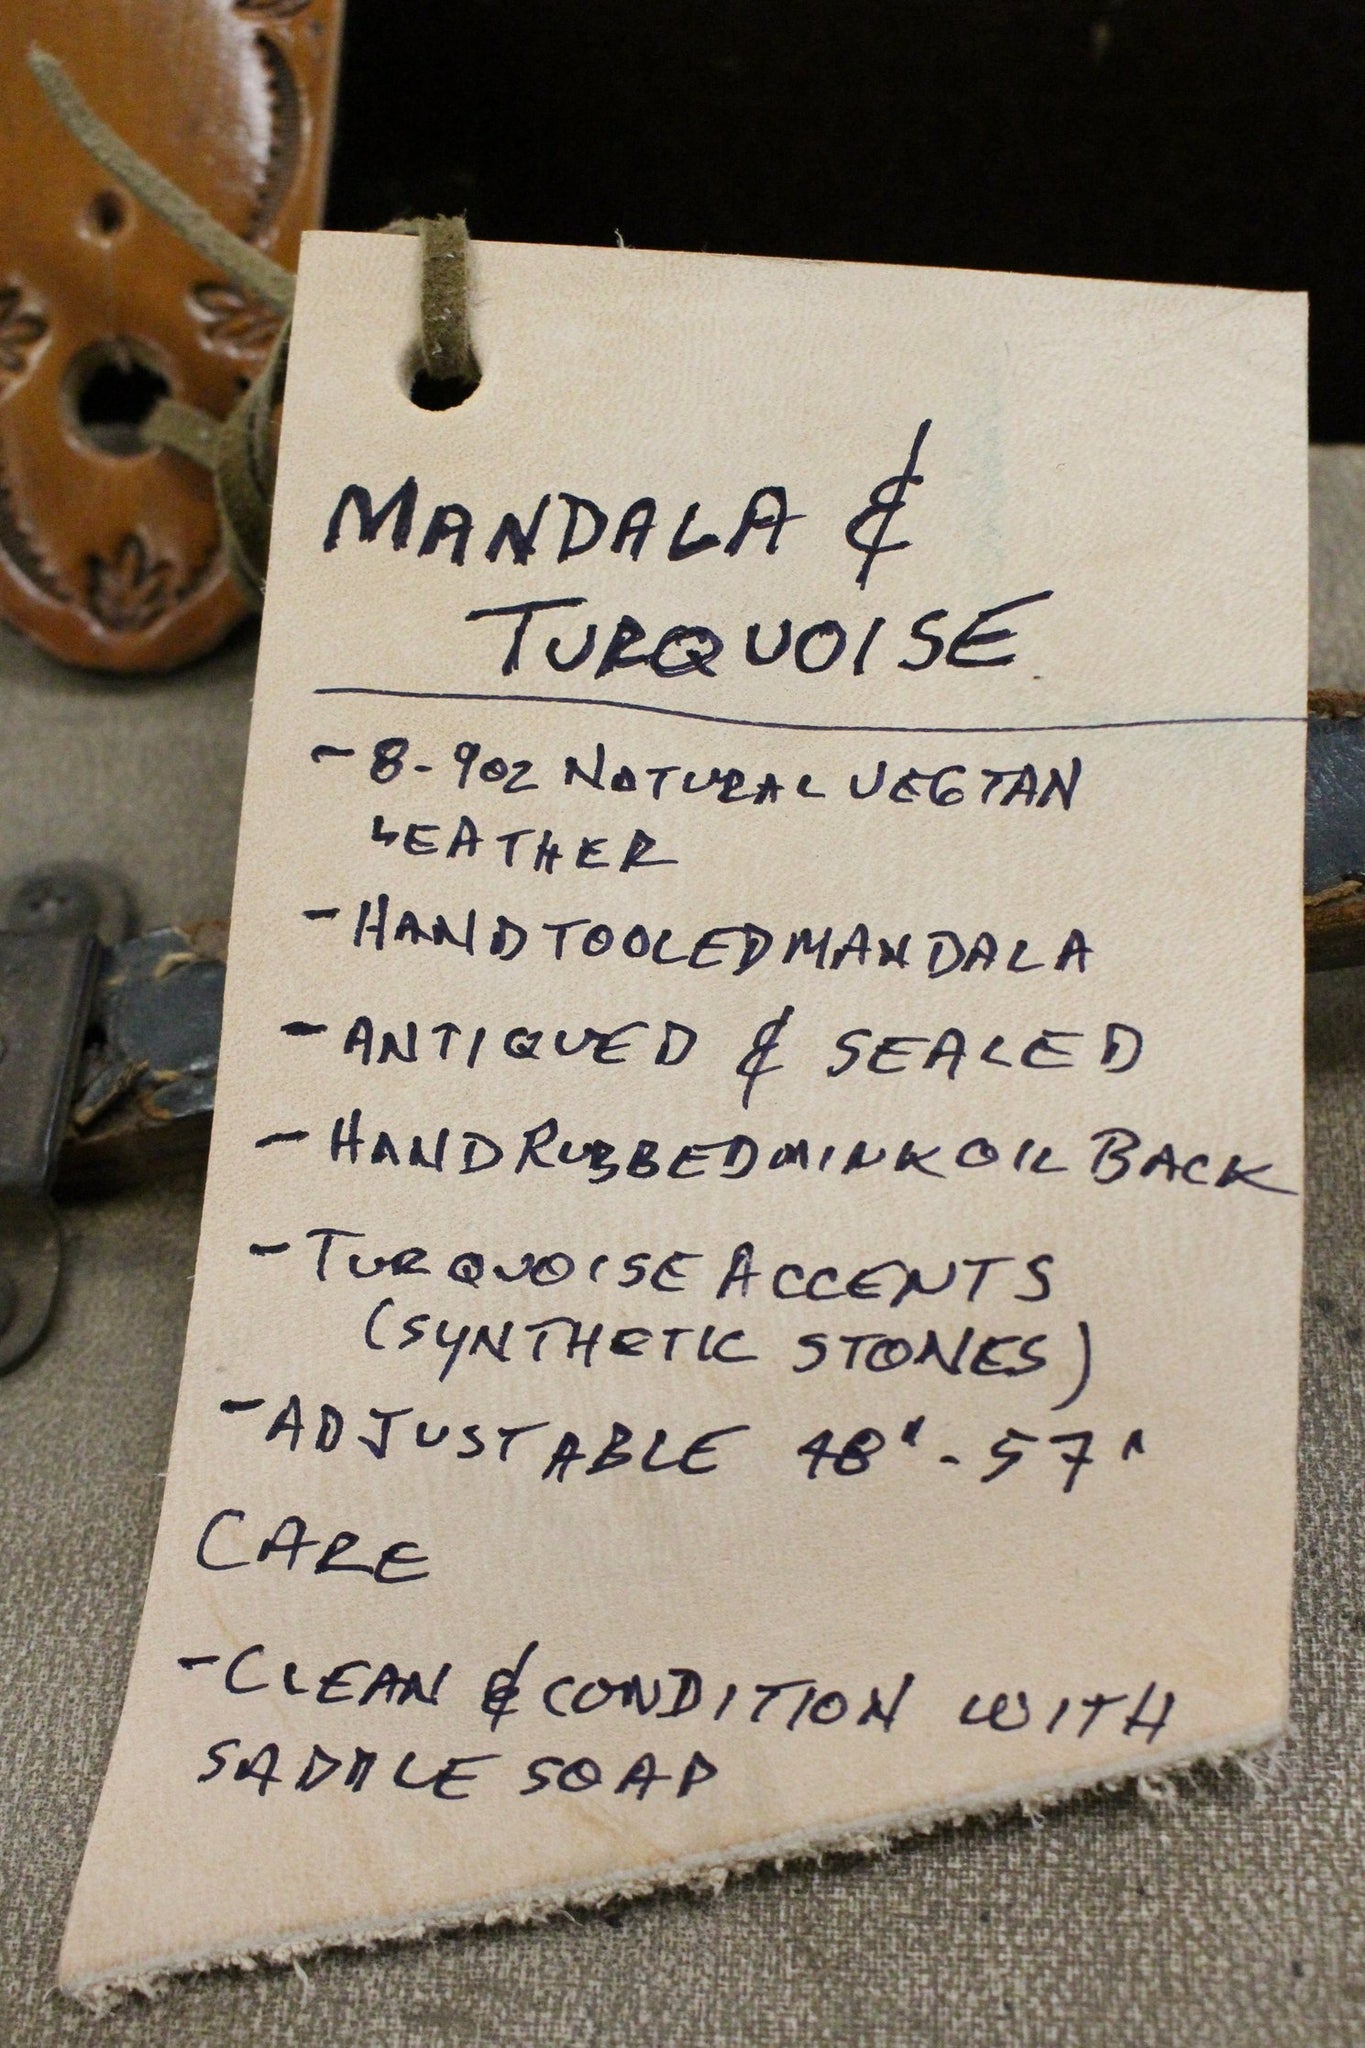 MANDALA &
TURQUOISE
- 8-9oz NATURAL VEGTAN
LEATHER
- HAND TOOLED MANDALA
- ANTIQUED & SEALED
- HAND RUBBED MINK OIL BACK
- TURQUOISE ACCENTS
(SYNTHETIC STONES)
- ADJUSTABLE 48" - 57"
CARE
- CLEAN & CONDITION WITH
SADDLE SOAP